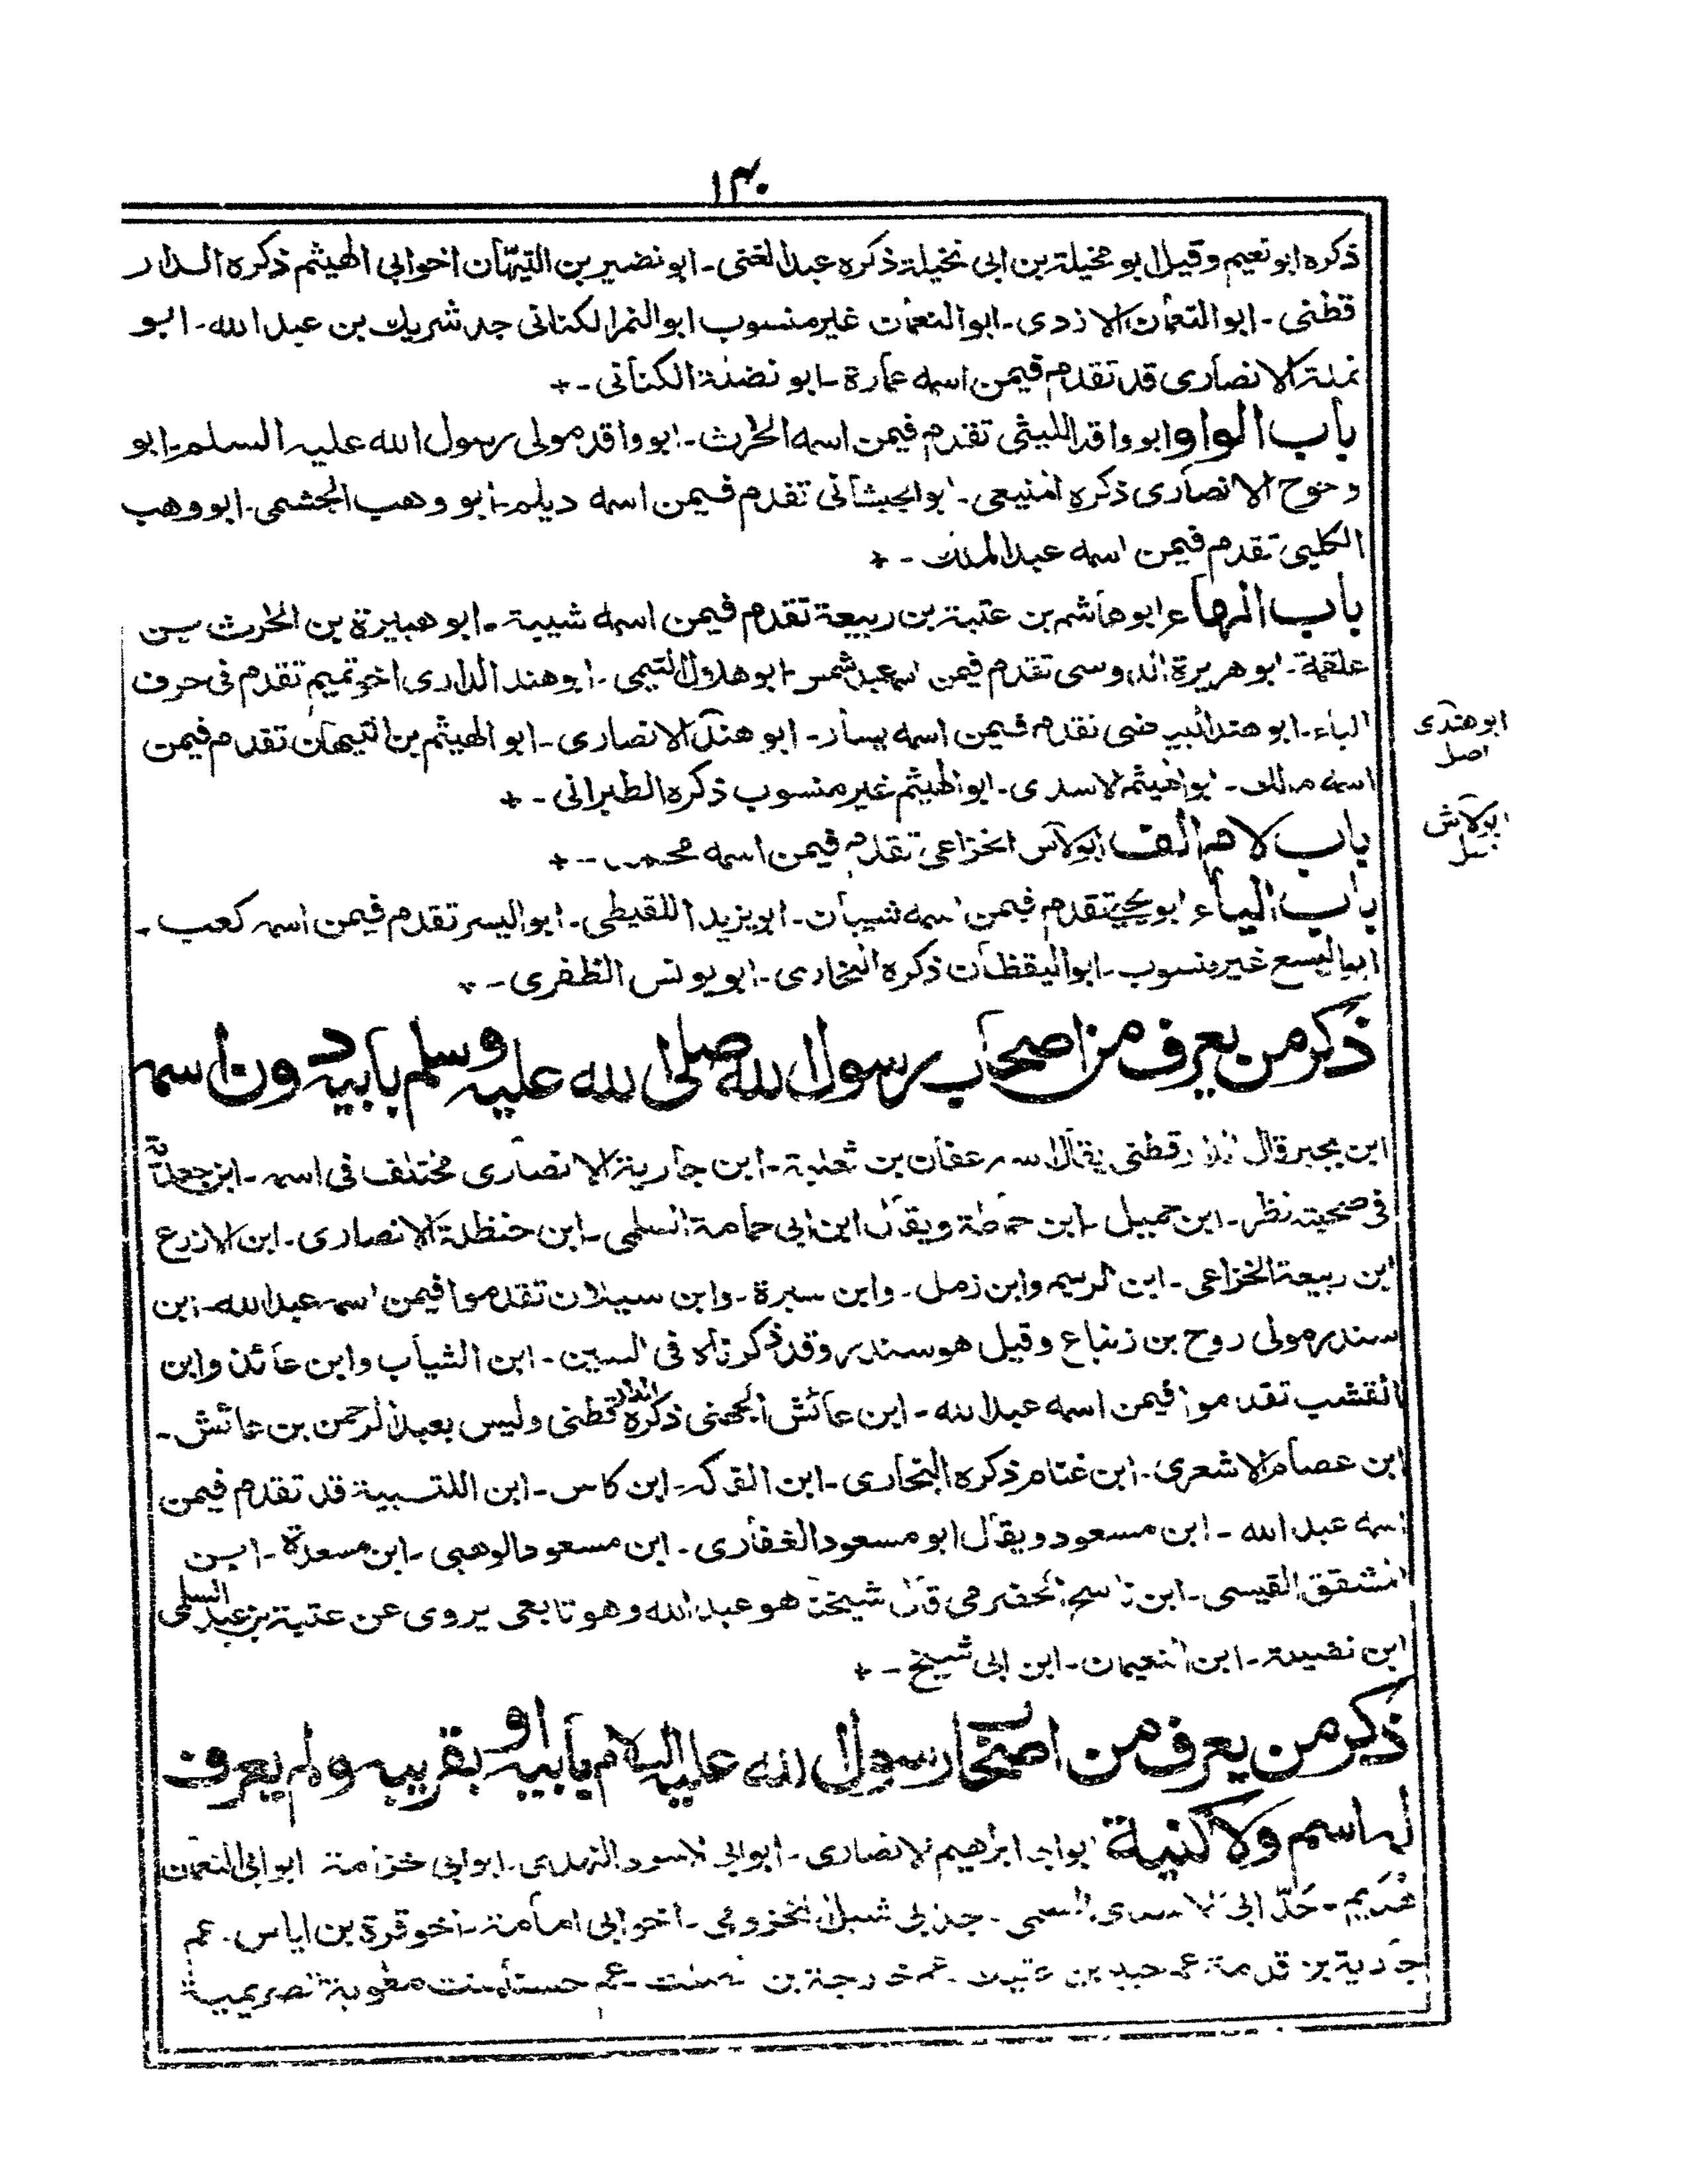 ١٤٠
ذكره ابو نعيم وقيل ابو مخيلة بن ابى نخيلة ذكره عبد الغنى ـ ابو نضير بن التيّهان اخو ابى الهيثم ذكره الدار
قطنى ـ ابو النعمان الازدى ـ ابو النعمان غير منسوب ابو النمر الكنانى جد شريك بن عبد الله ـ ابو
نملة الانصارى قد تقدم فيمن اسمه عمارة ـ ابو نضلة الكنانى ـ +
باب الواو ابو واقد الليثى تقدم فيمن اسمه الحرث ـ ابو واقد مولى رسول الله عليه السلم ـ ابو
وحوح الانصارى ذكره المنيعى ـ ابو الجيشانى تقدم فيمن اسمه ديلم ـ ابو وهب الجشمى ـ ابو وهب
الكلبى تقدم فيمن اسمه عبد الملك ـ +
باب الهاء ابو هاشم بن عتبة بن ربيعة تقدم فيمن اسمه شيبة ـ ابو هبيرة بن الحرث بن
علقمة ـ ابو هريرة الدوسى تقدم فيمن اسمه عبد شمس ـ ابو هلال التيمى ـ ابو هند الدارى اخو تميم تقدم فى حرف
الباء ـ ابو هند البياضى تقدم فيمن اسمه يسار ـ ابو هند الانصارى ـ ابو الهيثم بن التيهان تقدم فيمن
اسمه مالك ـ ابو الهيثم الاسدى ـ ابو الهيثم غير منسوب ذكره الطبرانى ـ +
ابو هندى
اصل
باب لام الف ابو لاس الخزاعى تقدم فيمن اسمه محمد ـ +
ابو لاش
باب الياء ابو يحيى تقدم فيمن اسمه شيبان ـ ابو يزيد اللقيطى ـ ابو اليسر تقدم فيمن اسمه كعب ـ
ابو اليسع غير منسوب ـ ابو اليقظان ذكره البخارى ـ ابو يونس الظفرى ـ +
ذكر من يعرف من اصحاب رسول الله صلى الله عليه وسلم بابيه دون اسمه
ابن بجير قال الدارقطنى يقال اسمه عفان بن ثعلبة ـ ابن جارية الانصارى مختلف فى اسمه ـ ابن جعدبة
فى صحبته نظر ـ ابن جميل ـ ابن حماطة ويقال ابن ابى حمامة السلمى ـ ابن حنظلة الانصارى ـ ابن الازرع
ابن ربيعة الخزاعى ـ ابن الرسيم وابن زمل ـ وابن سبرة ـ وابن سيلان تقدموا فيمن اسمه عبد الله ـ ابن
سندر مولى روح بن زنباع وقيل هو سندر وقد ذكرناه فى السين ـ ابن الشياب وابن عائذ وابن
القشب تقدموا فيمن اسمه عبد الله ـ ابن عائش الجهنى ذكره الدارقطنى وليس بعبد الرحمن بن عائش ـ
ابن عصام الاشعرى ـ ابن غنام ذكره البخارى ـ ابن القركه ـ ابن كاس ـ ابن اللتبية قد تقدم فيمن
اسمه عبد الله ـ ابن مسعود ويقال ابو مسعود الغفارى ـ ابن مسعود الوهبى ـ ابن مسعدة ـ ابن
المشقق القيسى ـ ابن ناسح الحضرمى قال شيخنا هو عبد الله وهو تابعى يروى عن عتبة بن عبد السلمى
ابن نضيلة ـ ابن النعيمان ـ ابن ابى شيخ ـ +
ذكر من يعرف من اصحاب رسول الله عليه السلام بابيه او بقريبه ولم يعرف
له اسم ولا كنية ابو ابراهيم الانصارى ـ ابو ابى الاسود النهدى ـ ابو ابى خزامة ابو ابى النعمان
جد ابى شبل المخزومى ـ اخو ابى امامة ـ اخو قرة بن اياس ـ عم